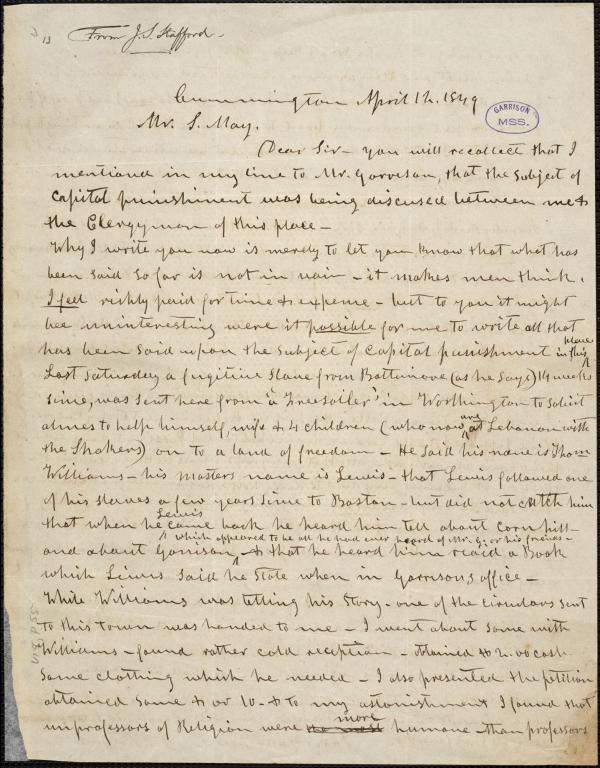 From J. S. Stafford.
Cummington April 12. 1849
GARRISON
MSS.
Mr. S. May.
Dear Sir - you will recollect that I
mentiond in my line to Mr. Garrison, that the Subject of
Capital punishment was being discused between me &
the Clergyman of this place -
Why I write you now is merely to let you know that what has
been Said So far is not in vain - it makes men think.
I feel richly paid for time & expense - but to you it might
bee uninteresting were it possible for me to write all that
has been Said upon the Subject of Capital punishment in this place
Last Saturday a fugitive Slave from Baltimore (as he Says) 14 weeks
Sine, was Sent here from "a Freesoiler" in Worthington to Solicit
almes to help himself, wife & 4 children (who now are at Lebanon with
the Shakers) on to a land of freedom - He Said his name is Thom
Williams - his masters name is Lewis - that Lewis followed one
of his Slaves a few years Sime to Boston - but did not catch him
that when he Lewis came back he heard him tell about Corn hill -
which appeared to be all he had ever heard of Mr. G. or his friends -
and about Garrison & that he heard him read a Book
which Lewis Said he Stole when in Garrisons office -
While Williams was telling his Story - one of the Circulars Sent
to this town was handed to me - I went about Some with
Williams - found rather cold reception - obtained $2.00 cash
Some clothing which he needed - I also presented the petition
obtained Some & 10 - & to my astonishment I found that
unprofessors of Religion were more humane - than professors